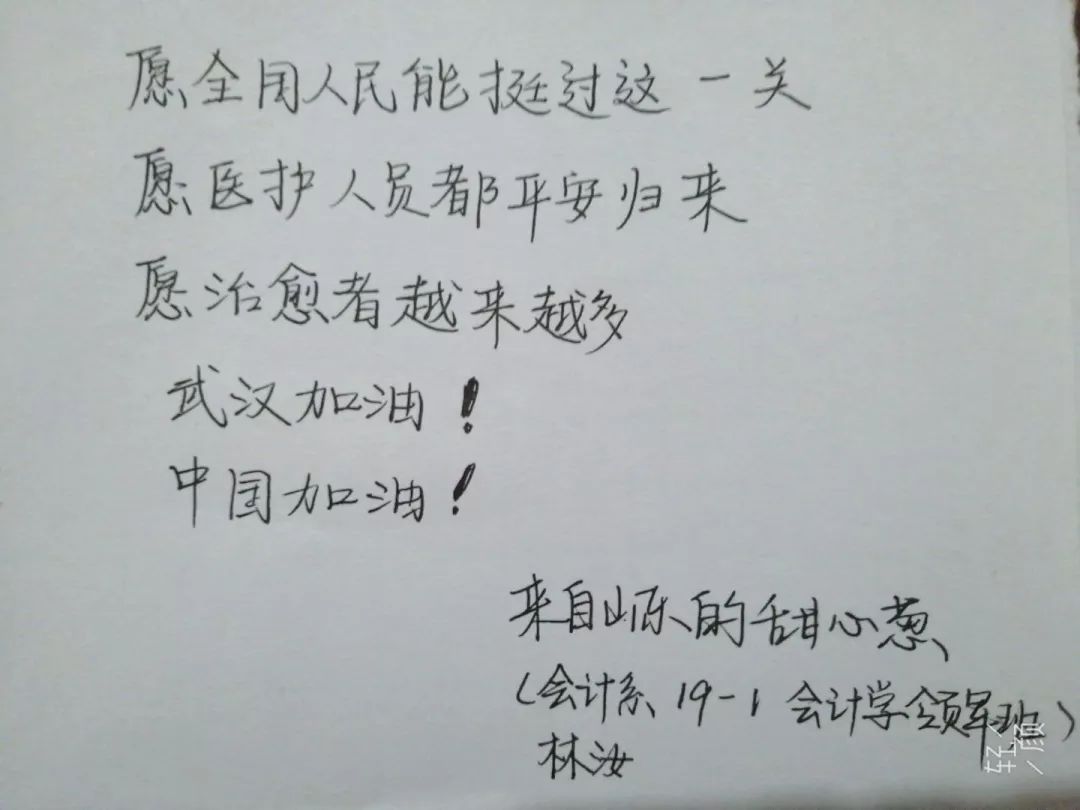 愿全国人民能挺过这一关
愿医护人员都平安归来
愿治愈者越来越多
武汉加油！
中国加油！
来自山东的甜心葱
（会计系 19-1 会计学领军班）
林汝
轻颜